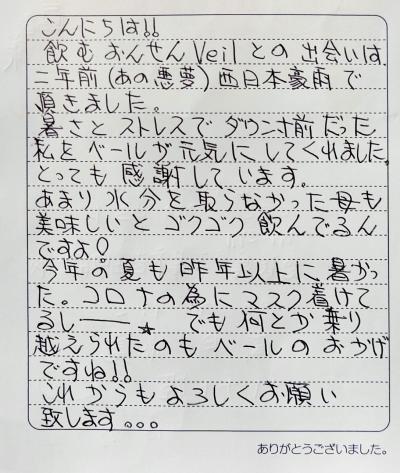 こんにちは!!
飲むおんせんVeilとの出会いは
二年前(あの悪夢)西日本豪雨で
頂きました。
暑さとストレスでダウン寸前だった
私をベールが元気にしてくれました。
とっても感謝しています。
あまり水分を取らなかった母も
美味しいとゴクゴク飲んでるん
ですよ!
今年の夏も昨年以上に暑かっ
た。コロナの為にマスク着けて
るし――☆ でも何とか乗り
越えられたのもベールのおかげ
ですね!!
これからもよろしくお願い
致します。。。
ありがとうございました。